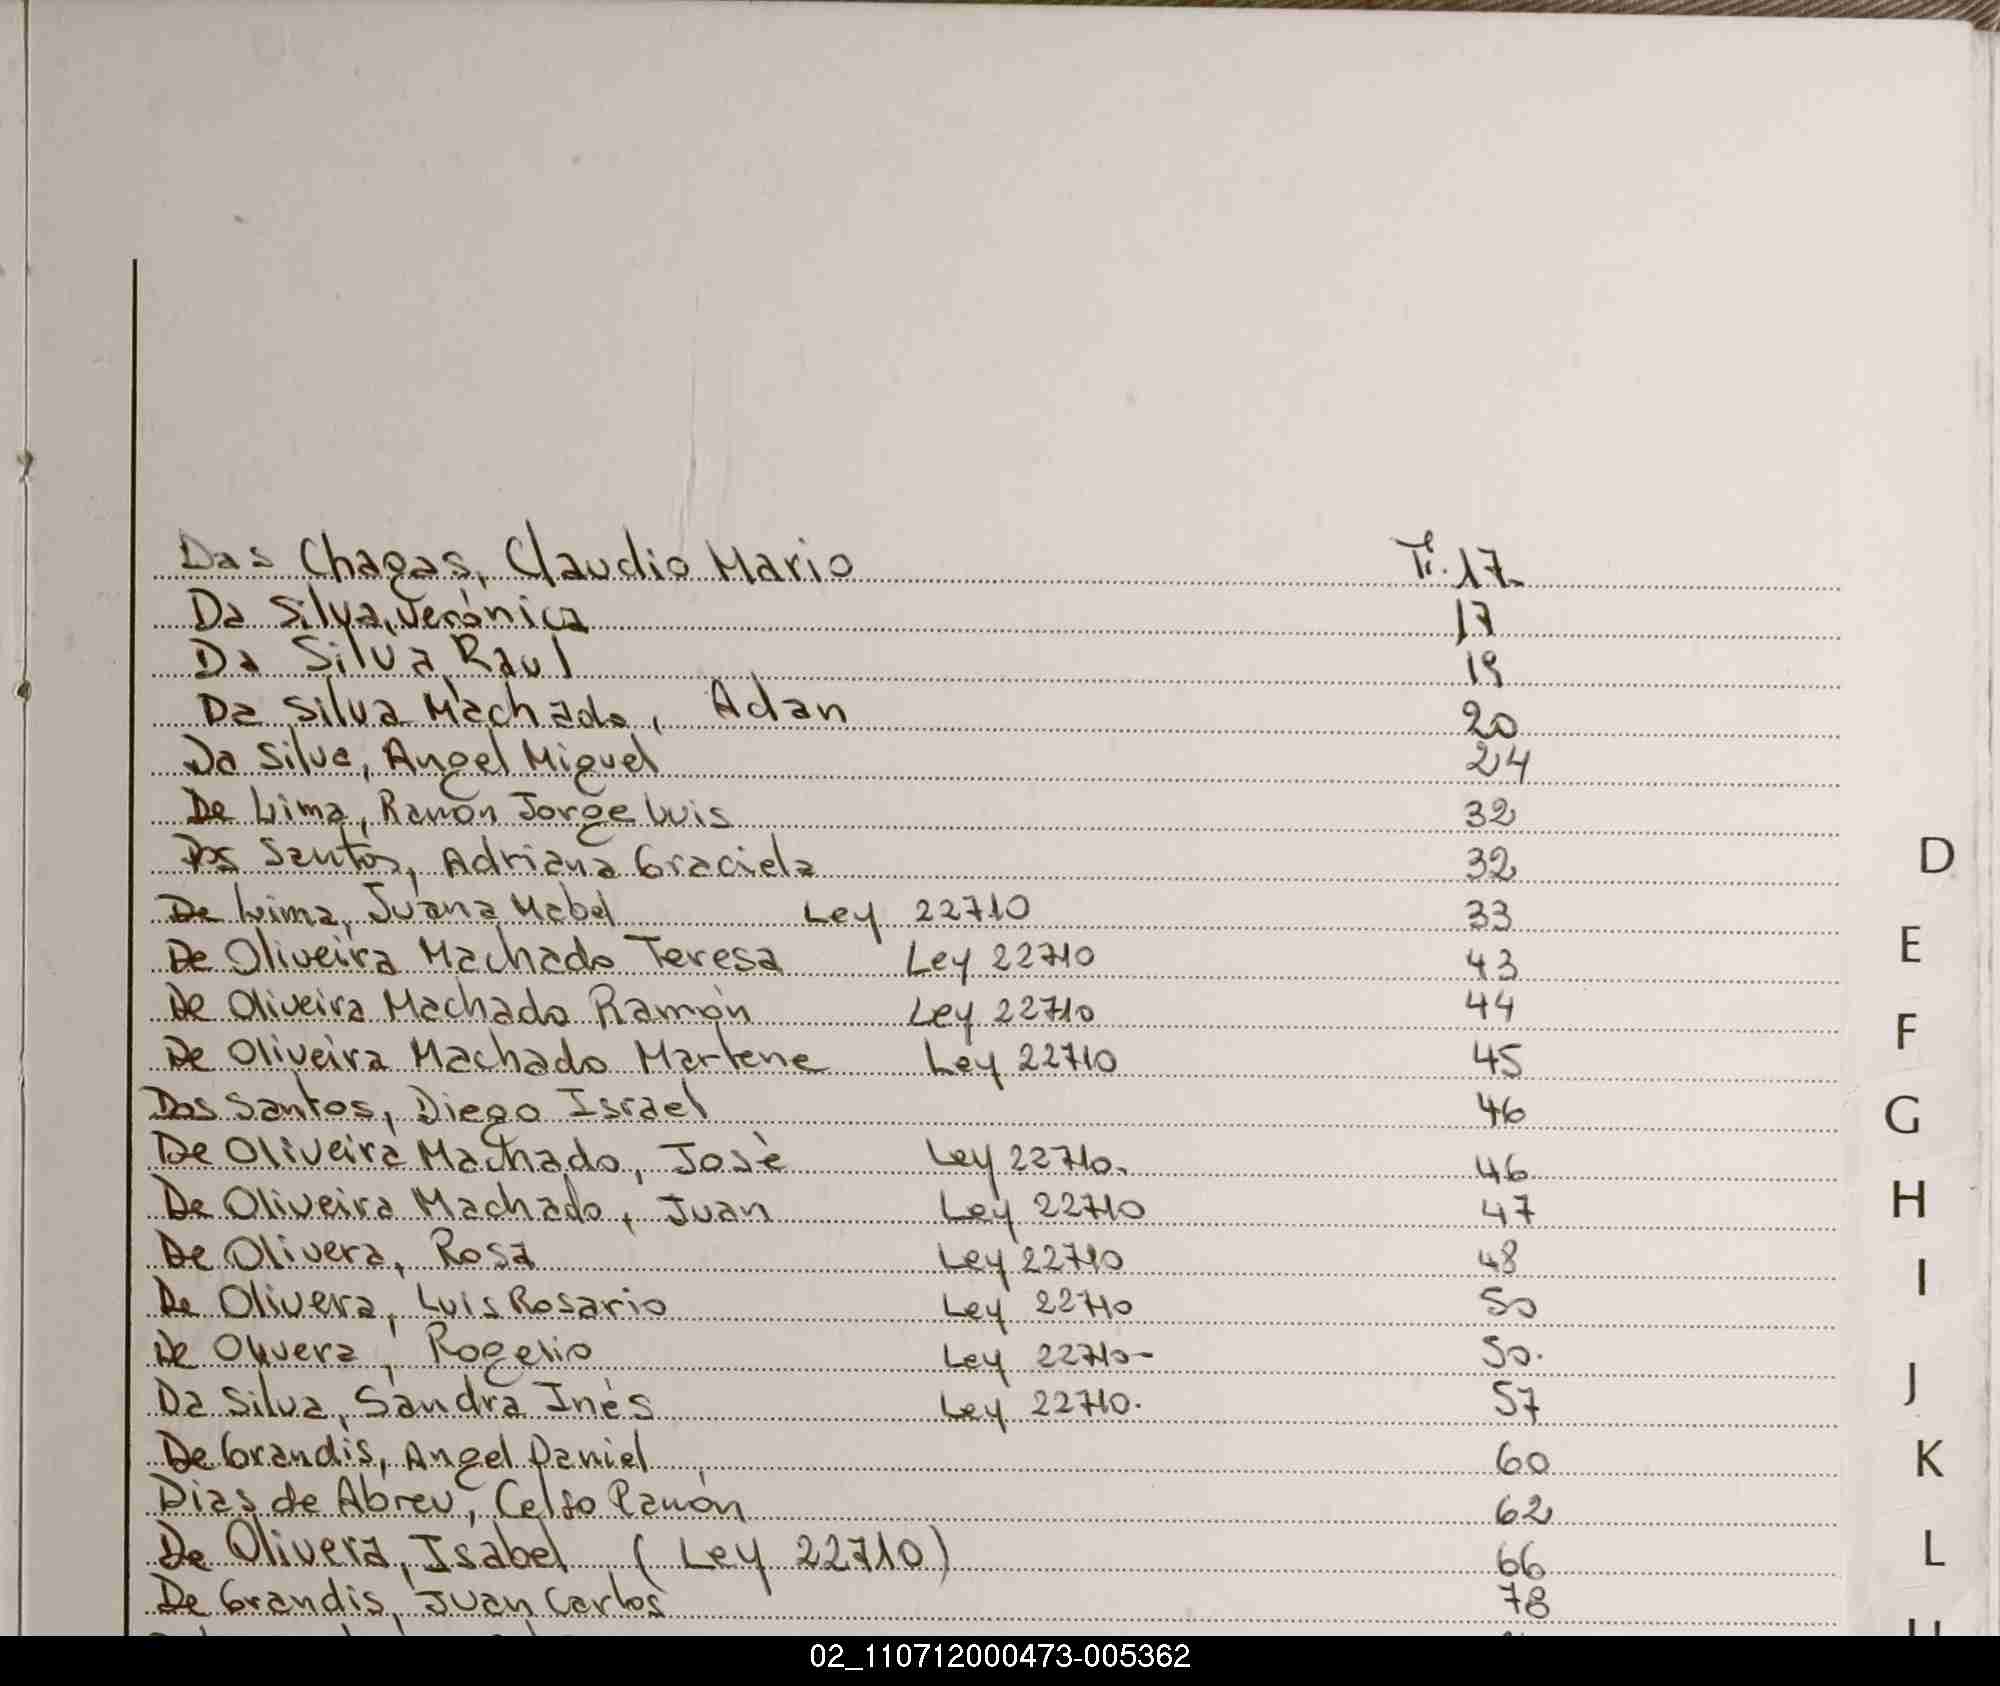 Das Chagas, Claudio Mario Fº. 17.
Da Silva, Verónica 17
Da Silva, Raul 19
Da Silva Machado, Adan 20
Da Silva, Angel Miguel 24
De Lima, Ramón Jorge Luis 32
Dos Santos, Adriana Graciela 32
De Lima, Juana Mabel Ley 22710 33
De Oliveira Machado Teresa Ley 22710 43
De Oliveira Machado Ramón Ley 22710 44
De Oliveira Machado Marlene Ley 22710 45
Dos Santos, Diego Israel 46
De Oliveira Machado, Josè Ley 22710. 46
De Oliveira Machado, Juan Ley 22710 47
De Olivera, Rosa Ley 22710 48
De Olivera, Luis Rosario Ley 22710 50
De Olivera, Rogelio Ley 22710- 50.
Da Silva, Sandra Inés Ley 22710. 57
De Grandis, Angel Daniel 60
Dias de Abreu, Celso Ramón 62
De Olivera, Isabel (Ley 22710) 66
De Grandis, Juan Carlos 78
D
E
F
G
H
I
J
K
L
02_110712000473-005362